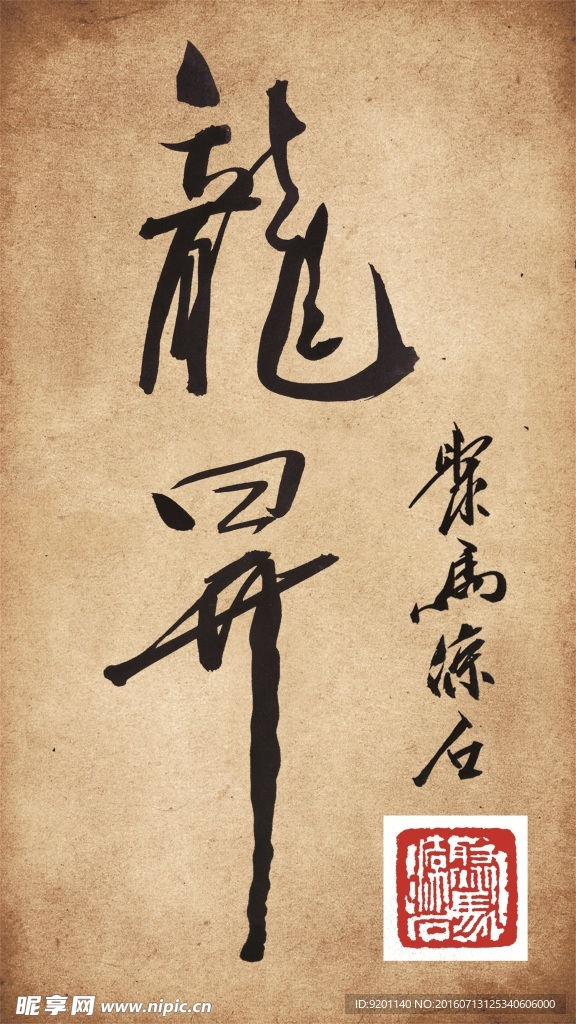 龍昇
聚馬涼石
昵享网 www.nipic.cn
ID:9201140 NO:20160713125340606000